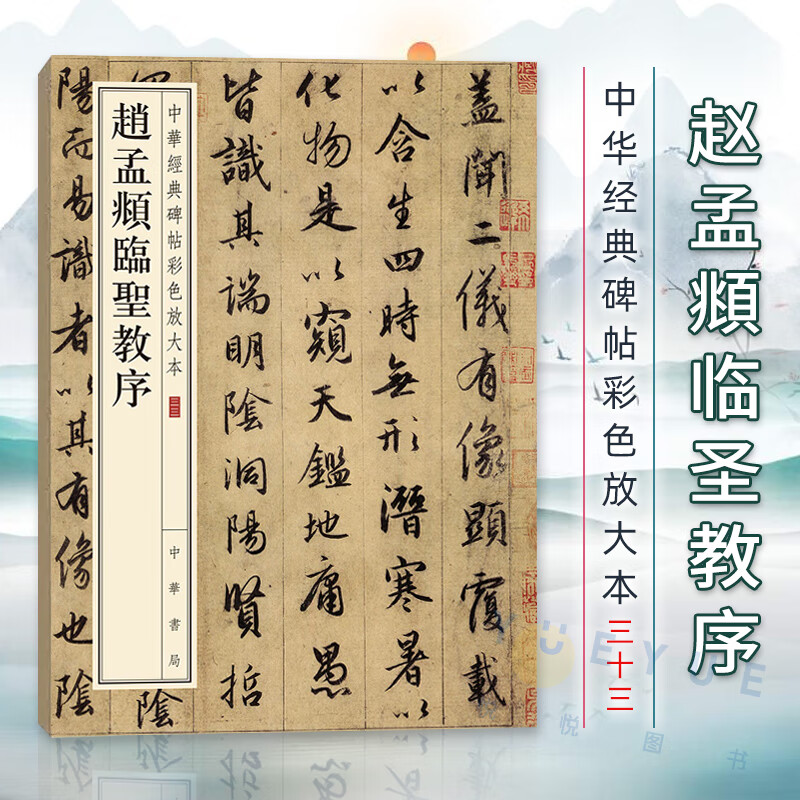 赵孟頫临圣教序
中华经典碑帖彩色放大本三十三
蓋聞二儀有像顯覆載
以含生四時無形潛寒暑以
化物是以窺天鑑地庸愚
皆識其端明陰洞陽賢哲
陰
陽而易識者以其有像也陰
中華經典碑帖彩色放大本
三三
趙孟頫臨聖教序
中華書局
YUEYUE
悦图书